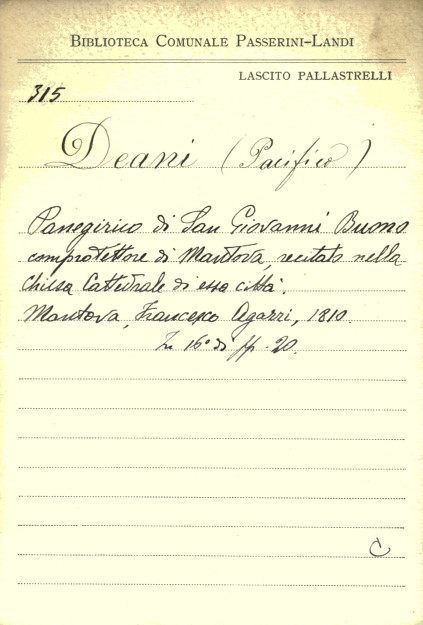 BIBLIOTECA COMUNALE PASSERINI-LANDI
LASCITO PALLASTRELLI
315
Deani (Pacifico)
Panegirico di San Giovanni Buono
comprotettore di Mantova, recitato nella
chiesa Cattedrale di essa città.
Mantova, Francesco Agazzi, 1810.
In 16° di pp. 20.
C